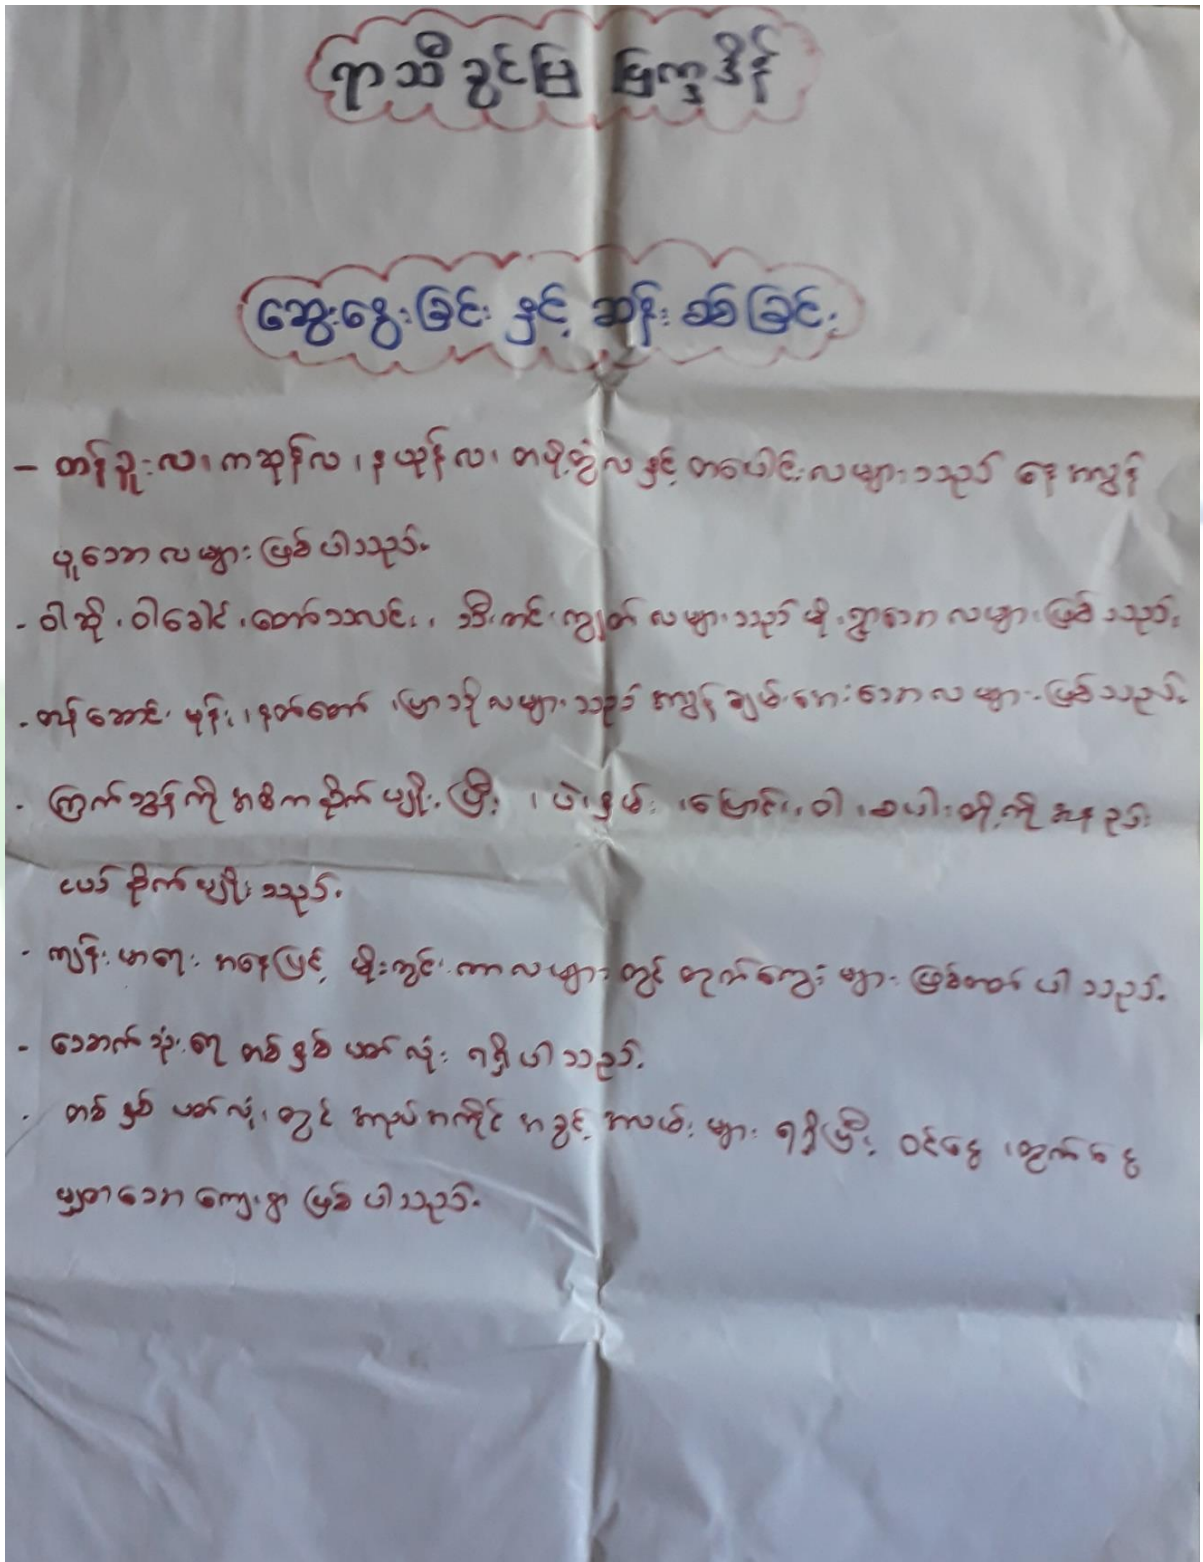 ရာသီခွင်ပြ ပြက္ခဒိန်
ဆွေးနွေးခြင်း နှင့် ဆန်းစစ်ခြင်း
- တန်ခူးလ၊ ကဆုန်လ ၊ နယုန်လ၊ တပို့တွဲလ နှင့် တပေါင်းလများသည် နေ
ပူသောလများ ဖြစ်ပါသည်။
- ဝါဆို ၊ ဝါခေါင် ၊ တော်သလင်း ၊ သီတင်းကျွတ် လများသည် မိုးရွာသော လများ ဖြစ်သည်။
- တန်ဆောင်မုန်း ၊ နတ်တော် ၊ ပြာသိုလများသည် အလွန်ချမ်းအေးသော လများ ဖြစ်သည်။
- ကြက်သွန်ကို အဓိကစိုက်ပျိုးပြီး ၊ ပဲ၊ နှမ်း ၊ ပြောင်း၊ ဝါ ၊ စပါးတို့ကို အနည်း
ငယ် စိုက်ပျိုးသည်။
- ကျန်းမာရေး အနေဖြင့် မိုးတွင်းကာလများတွင် တုပ်ကွေးများ ဖြစ်တတ်ပါသည်။
- သောက်သုံးရေ တစ်နှစ်ပတ်လုံး ရရှိပါသည်။
- တစ်နှစ်ပတ်လုံးတွင် အလုပ်အကိုင် အခွင့်အလမ်းများ ရရှိပြီး ဝင်ငွေ ၊ ထွက်ငွေ
မျှတသော ကျေးရွာ ဖြစ်ပါသည်။